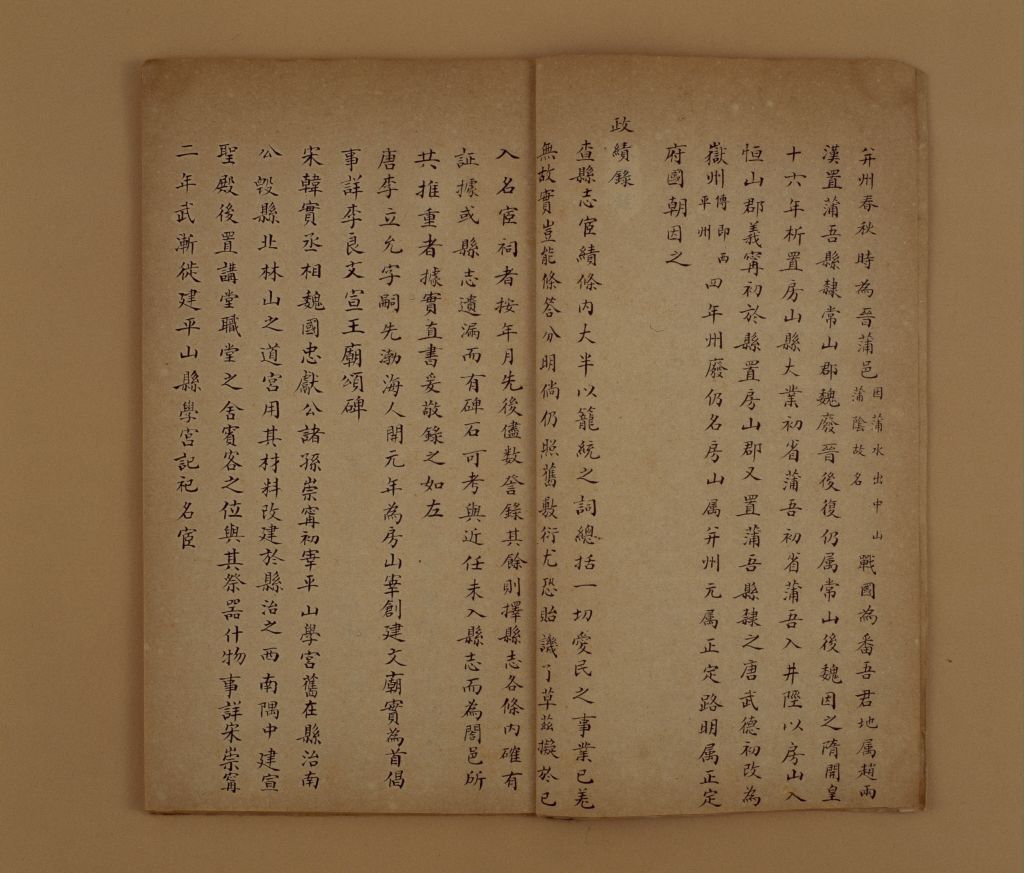 并州春秋時為晉蒲邑因蒲水出中山蒲陰故名戰國為番吾君地属趙兩
漢置蒲吾縣隸常山郡魏廢晉後復仍属常山後魏因之隋開皇
十六年析置房山縣大業初省蒲吾初省蒲吾入井陘以房山入
恒山郡義寧初於縣置房山郡又置蒲吾縣隸之唐武德初改為
嶽州傅即西平州四年州廢仍名房山属并州元属正定路明属正定
府國朝因之
政績錄
查縣志宦績條內大半以籠統之詞總括一切愛民之事業已羌
無故實豈能條答分明倘仍照舊敷衍尤恐貽譏了草茲擬於已
入名宦祠者按年月先後儘数謄錄其餘則擇縣志各條內確有
証據或縣志遺漏而有碑石可考與近任未入縣志而為闔邑所
共推重者據實直書妥敬錄之如左
唐李立允字嗣先渤海人開元年為房山宰創建文廟實為首倡
事詳李良文宣王廟頌碑
宋韓實丞相魏國忠獻公諸孫崇寧初宰平山學宮舊在縣治南
公毀縣北林山之道宮用其材料改建於縣治之西南隅中建宣
聖殿後置講堂職堂之舍賓客之位與其祭器什物事詳宋崇寧
二年武漸徙建平山縣學宮記祀名宦